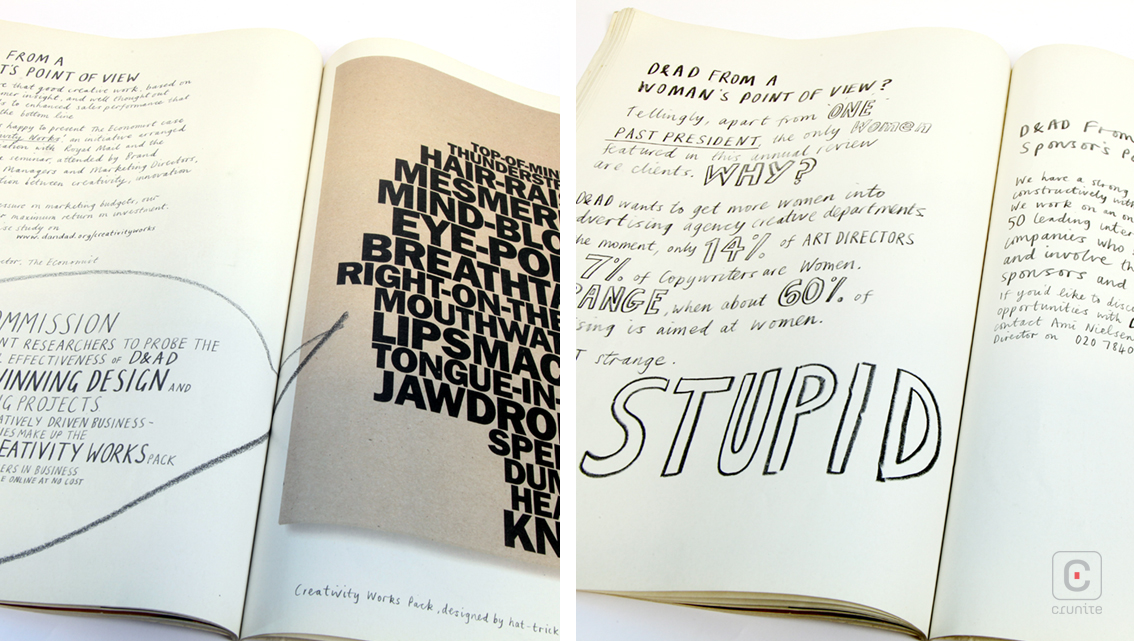 FROM A
T'S POINT OF VIEW
e that good creative work, based on
mer insight, and well thought out
s to enhanced sales performance that
the bottom line
s happy to present The Economist case
ivity Works', an initiative arranged
ration with Royal Mail and the
e seminar, attended by Brand
Managers and Marketing Directors,
tion between creativity, innovation
essure on marketing budgets, our
r maximum return on investment.
se study on
www.dandad.org/creativityworks
ctor, The Economist
OMMISSION
ENT RESEARCHERS TO PROBE THE
L EFFECTIVENESS OF D&AD
WINNING DESIGN AND
NG PROJECTS
ATIVELY DRIVEN BUSINESS-
IES MAKE UP THE
REATIVITY WORKS PACK
ERS IN BUSINESS
E ONLINE AT NO COST
TOP-OF-MIN
THUNDERSTR
HAIR-RAIS
MESMERI
MIND-BLO
EYE-POP
BREATHTA
RIGHT-ON-THE
MOUTHWAT
LIPSMAC
TONGUE-IN-
JAWDROP
SPEL
DUM
HEA
KN
Creativity Works Pack, designed by hat-trick
D&AD FROM A
WOMAN'S POINT OF VIEW?
Tellingly, apart from ONE
PAST PRESIDENT, the only Women
featured in this annual review
are clients. WHY?
D&AD wants to get more women into
dvertising agency creative departments.
he moment, only 14% of ART DIRECTORS
7% of Copywriters are Women.
RANGE, when about 60% of
sing is aimed at women.
T strange.
STUPID
D&AD From
Sponsor's Po
We have a strong
constructively with
We work on an on
50 leading inter
companies who
and involve th
sponsors and
If you'd like to discu
opportunities with D
contact Ami Nielsen
Director on 020 7840
crunite